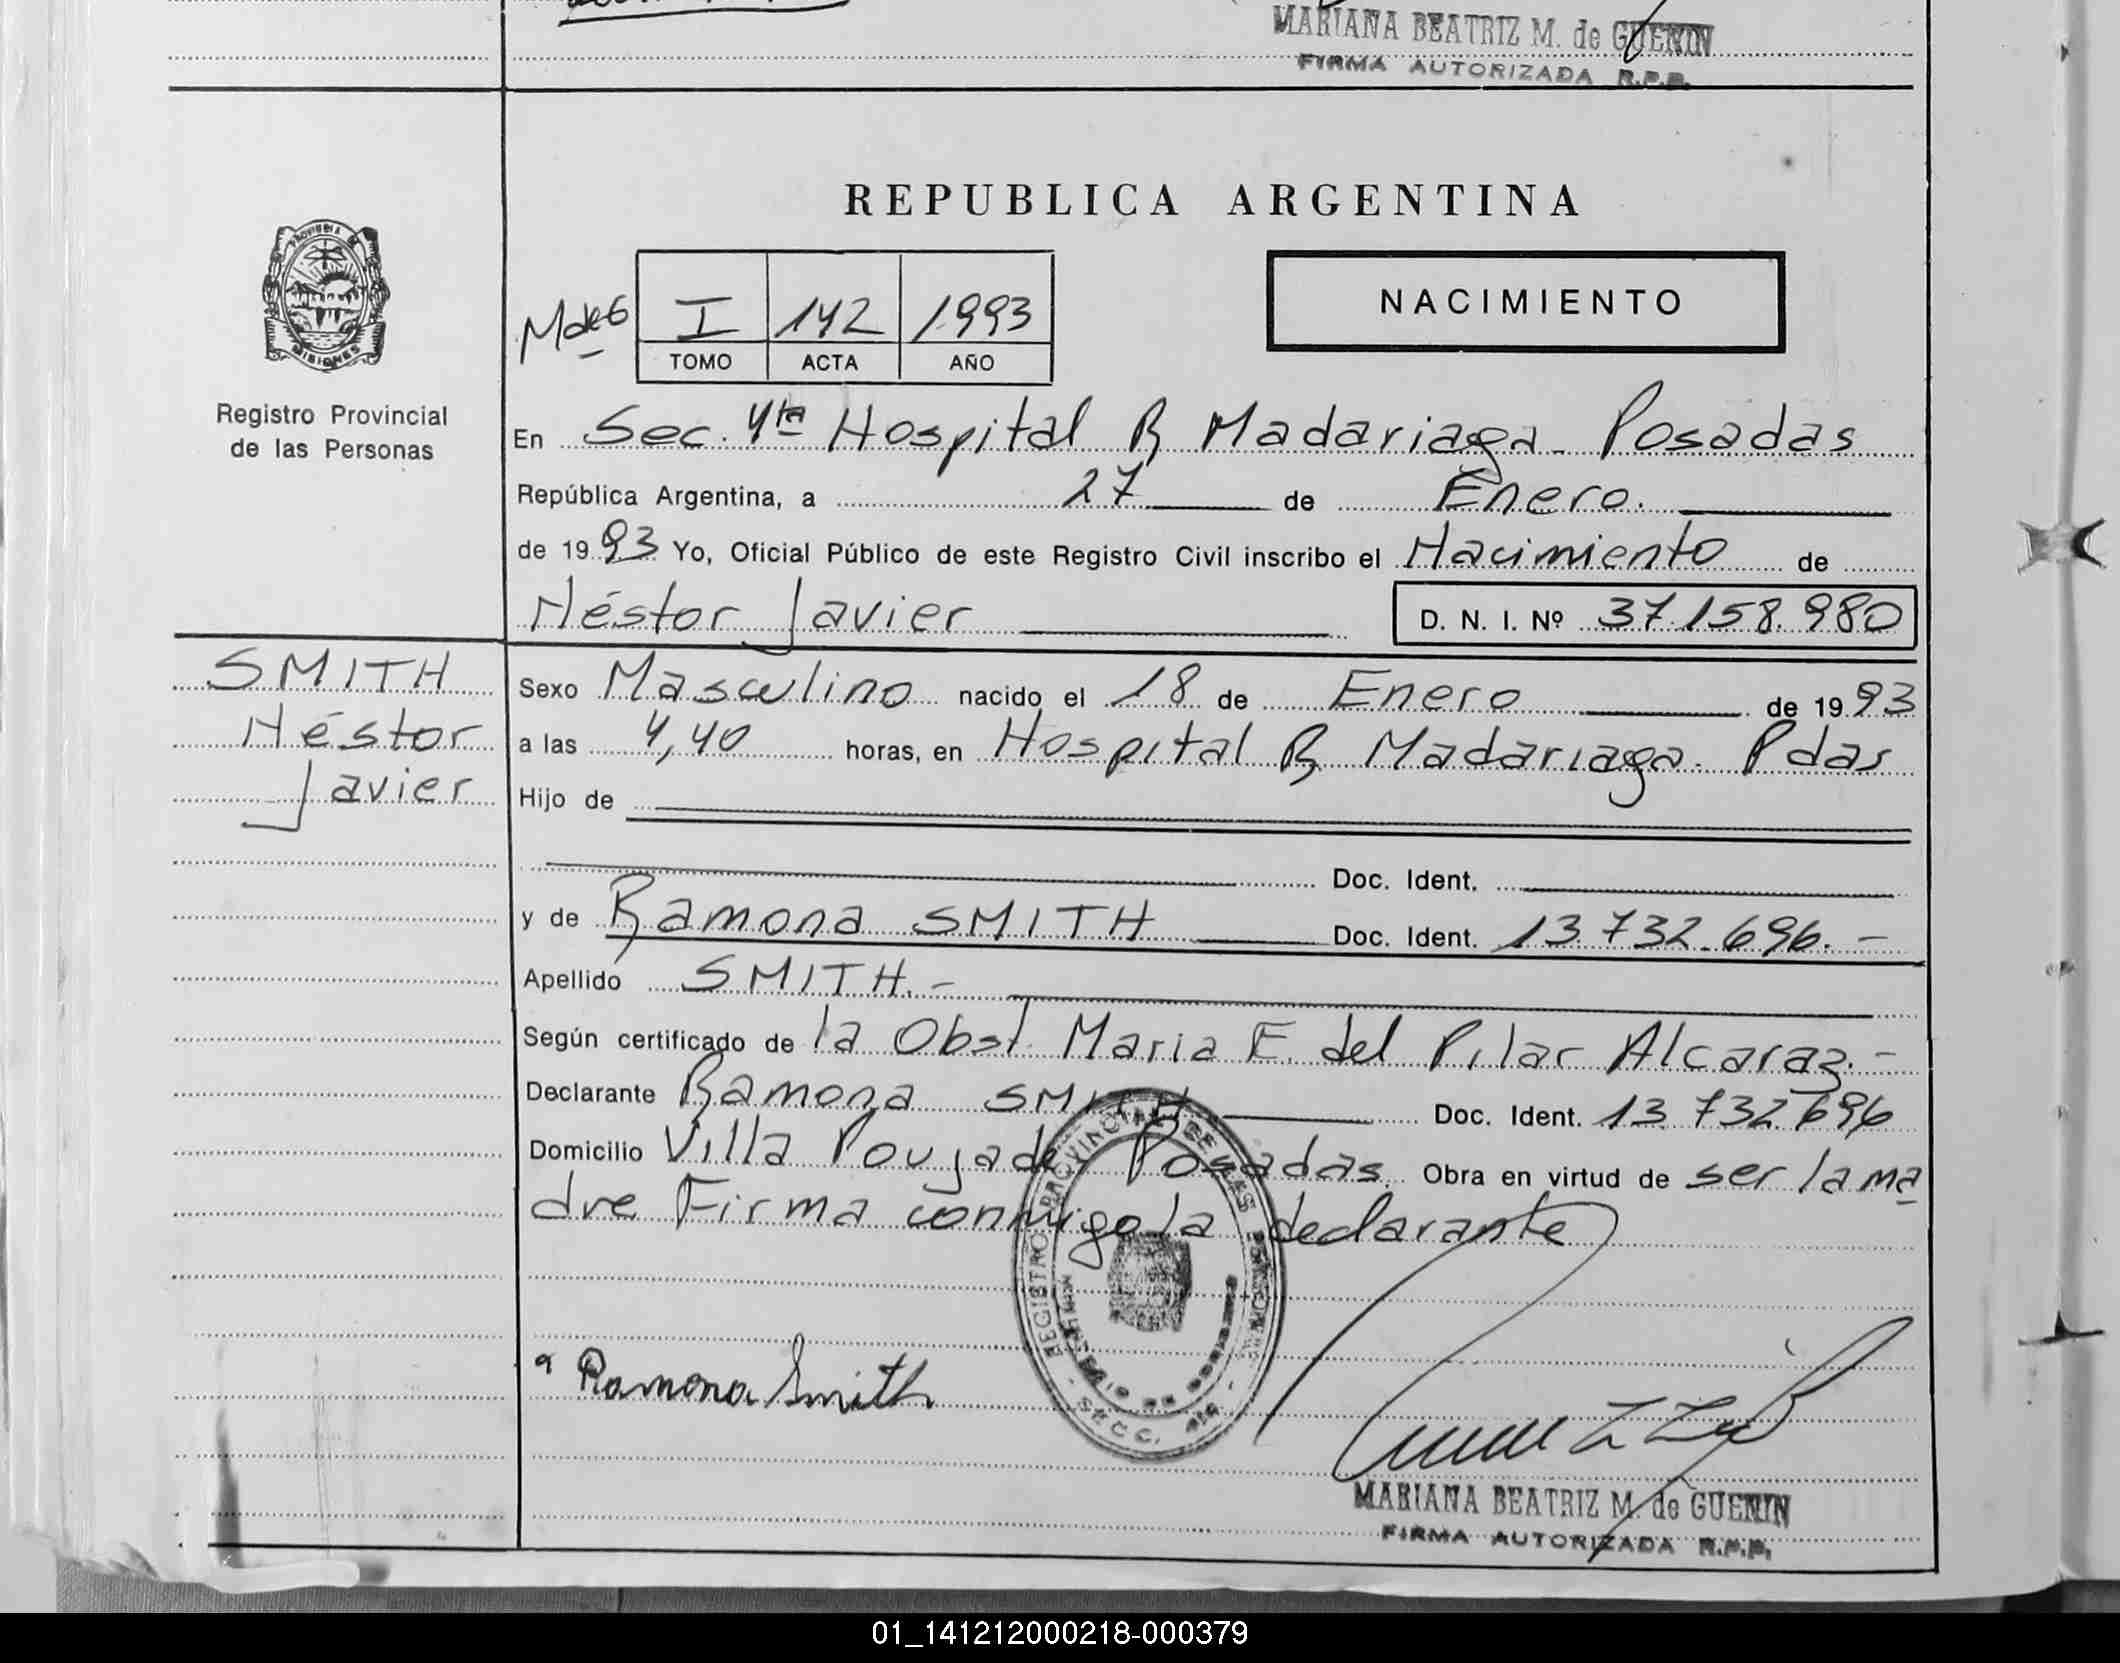 MARIANA BEATRIZ M. de GUENIN
FIRMA AUTORIZADA R.P.P.
REPUBLICA ARGENTINA
PROVINCIA DE
MISIONES
Registro Provincial
de las Personas
I 142 1993
TOMO ACTA AÑO
NACIMIENTO
En Sec. 4ta Hospital R Madariaga - Posadas
República Argentina, a 27 de Enero.
de 1993 Yo, Oficial Público de este Registro Civil inscribo el Nacimiento de
Néstor Javier D. N. I. Nº 37.158.980
SMITH
Néstor
Javier
Sexo Masculino nacido el 18 de Enero de 1993
a las 4,40 horas, en Hospital R Madariaga. Pdas
Hijo de
Doc. Ident.
y de Ramona SMITH Doc. Ident. 13.732.696.-
Apellido SMITH.-
Según certificado de la Obst. Maria E. del Pilar Alcaraz.-
Declarante Ramona SMITH Doc. Ident. 13.732.696
Domicilio Villa Poujade, Posadas. Obra en virtud de ser la ma
dre Firma conmigo la declarante
REGISTRO PROVINCIAL DE LAS PERSONAS
SECC. 4ta
Ramona Smith
MARIANA BEATRIZ M. de GUENIN
FIRMA AUTORIZADA R.P.P.
01_141212000218-000379